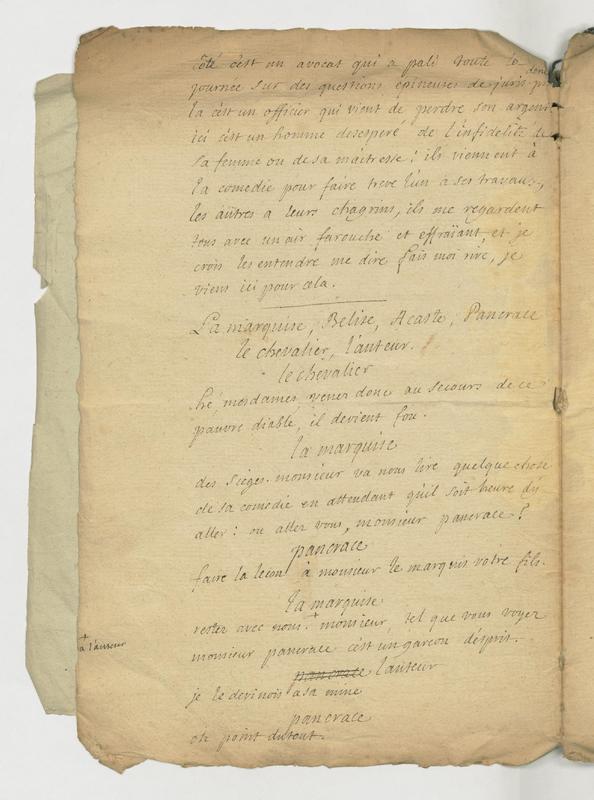 côté c'est un avocat qui a pali toute la
journée sur des questions épineuses de juris-
la c'est un officier qui vient de perdre son argent
ici c'est un homme desesperé de l'infidelité de
sa femme ou de sa maitresse: ils viennent à
la comedie pour faire treve l'un à ses travaux,
les autres a leurs chagrins, ils me regardent
tous avec un air farouche et effraïant, et je
crois les entendre me dire fais moi rire, je
viens ici pour cela.
La marquise, Belise, Acaste, Pancrace
le chevalier, l'auteur.
le chevalier
hé, mesdames, venez donc au secours de ce
pauvre diable, il devient fou.
la marquise
des sieges. monsieur va nous lire quelque chose
de sa comedie en attendant qu'il soit heure d'y
aller: ou allez vous, monsieur pancrace?
pancrace
faire la leçon à monsieur le marquis votre fils.
la marquise
restez avec nous. + monsieur, tel que vous voyez
+ a l'auteur
monsieur pancrace c'est un garçon d'esprit.
pancrace l'auteur
je le devinois a sa mine
pancrace
oh point du tout.